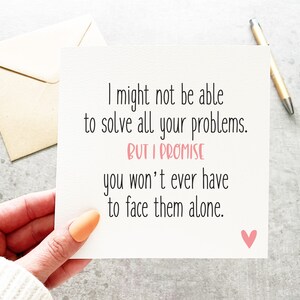 I might not be able
to solve all your problems.
BUT I PROMISE
you won't ever have
to face them alone.